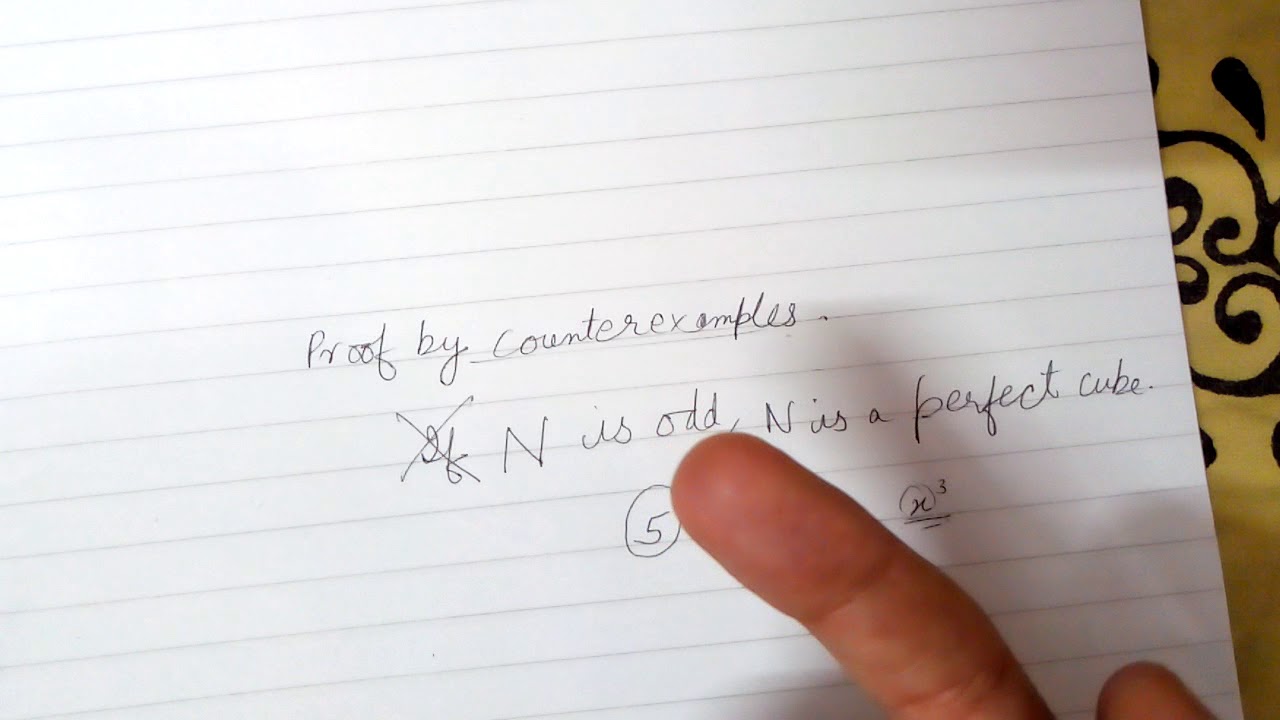 Proof by counterexamples.
If N is odd, N is a perfect cube.
5 x³